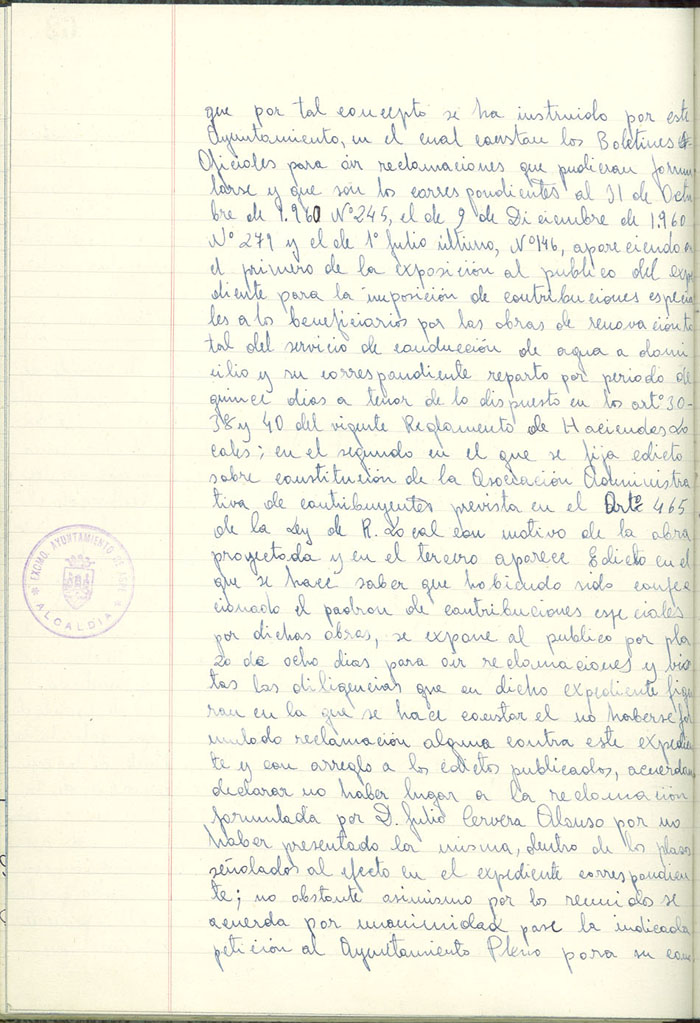 que por tal concepto se ha instruido por este
Ayuntamiento, en el cual constan los Boletines
Oficiales para oir reclamaciones que pudieran formu
larse y que son los correspondientes al 31 de Octu
bre de 1.960 Nº 245, el de 9 de Diciembre de 1.960
Nº 279 y el de 1º Julio último, Nº 146, apareciendo en
el primero de la exposición al publico del expe
diente para la imposición de contribuciones especia
les a los beneficiarios por las obras de renovación to
tal del servicio de conducción de agua a domi
cilio y su correspondiente reparto por periodo de
quince dias a tenor de lo dispuesto en los artº 30-
38 y 40 del vigente Reglamento de Haciendas Lo
cales; en el segundo en el que se fija edicto
sobre constitución de la Asociación Administra
tiva de contribuyentes prevista en el Artº 465
de la Ley de R. Local con motivo de la obra
proyectada y en el tercero aparece Edicto en el
que se hace saber que habiendo sido confec
cionado el padron de contribuciones especiales
por dichas obras, se expone al publico por pla
zo de ocho dias para oir reclamaciones y vis
tas las diligencias que en dicho expediente figu
ran en la que se hace constar el no haberse for
mulado reclamación alguna contra este expedien
te y con arreglo a los edictos publicados, acuerdan
declarar no haber lugar a la reclamación
formulada por D. Julio Cervera Alonso por no
haber presentado la misma, dentro de los plazos
señalados al efecto en el expediente correspondien
te; no obstante asimismo por los reunidos se
acuerda por unanimidad pase la indicada
petición al Ayuntamiento Pleno para su cono
EXCMO. AYUNTAMIENTO DE
ALCALDIA